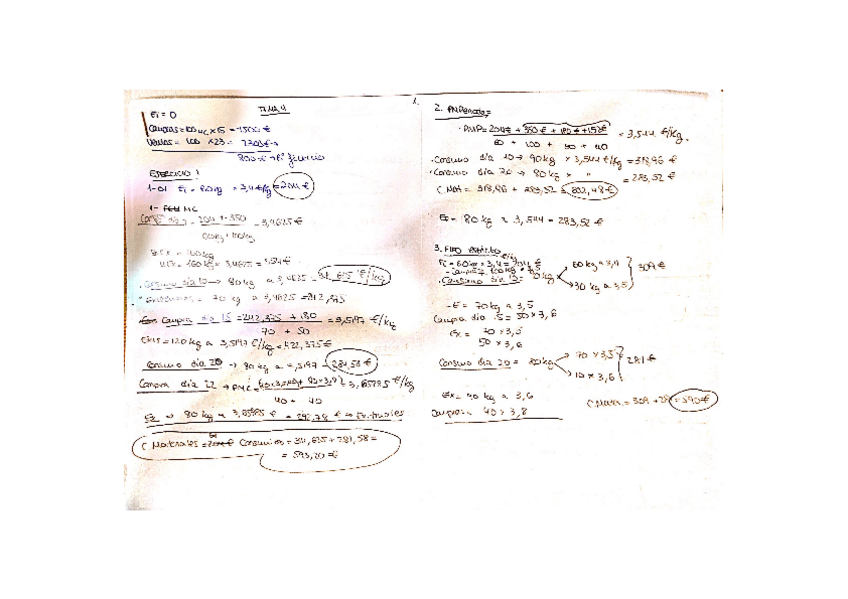 1.
TEMA 4
Ei = 0
Compras = 100 uc x 15 = 1500 €
Ventas = 100 x 23 = 2300 €
800 €
EJERCICIO 1
1-01 Ei = 60 kg = 3,4 €/kg = 204 €
1- PMC
204 + 350 = 3,4625 €
Consumo día 10 → 90 kg a 3,4625 = 311,625 €/kg
Existencias = 70 kg a 3,4625 = 242,375
Compra día 15 = 242,375 + 180 = 3,5197 €/kg
70 + 50
Exis = 120 kg a 3,5197 €/kg = 422,375 €
Consumo día 20 → 80 kg a 3,5197 = 281,58 €
Compra día 22 → PMC =
40 + 40
80 kg a
C Materiales = Consumos = 311,625 + 281,58 =
= 593,20 €
2. PMPonderado =
PMP = 204 € + 350 € + 180 € + 152 € = 3,544 €/kg.
60 + 100 + 50 + 40
. Consumo día 10 → 90 kg x 3,544 €/kg = 318,96 €
. Consumo día 20 → 80 kg x " = 283,52 €
C Mat = 318,96 + 283,52 = 602,48 €
Ef = 80 kg a 3,544 = 283,52 €
3. FIFO
Ei = 60 kg x 3,4 = 204 €
- Compra 100 kg x 3,5
. Consumo día 10 = 90 kg
60 kg a 3,4
30 kg a 3,5
309 €
- E = 70 kg a 3,5
Compra día 15 = 50 x 3,6
Ex = 70 x 3,5
50 x 3,6
Consumo día 20 = 80 kg
70 x 3,5
10 x 3,6
281 €
Ex = 40 kg a 3,6
Compra = 40 x 3,8
C Mater = 309 + 281 = 590 €